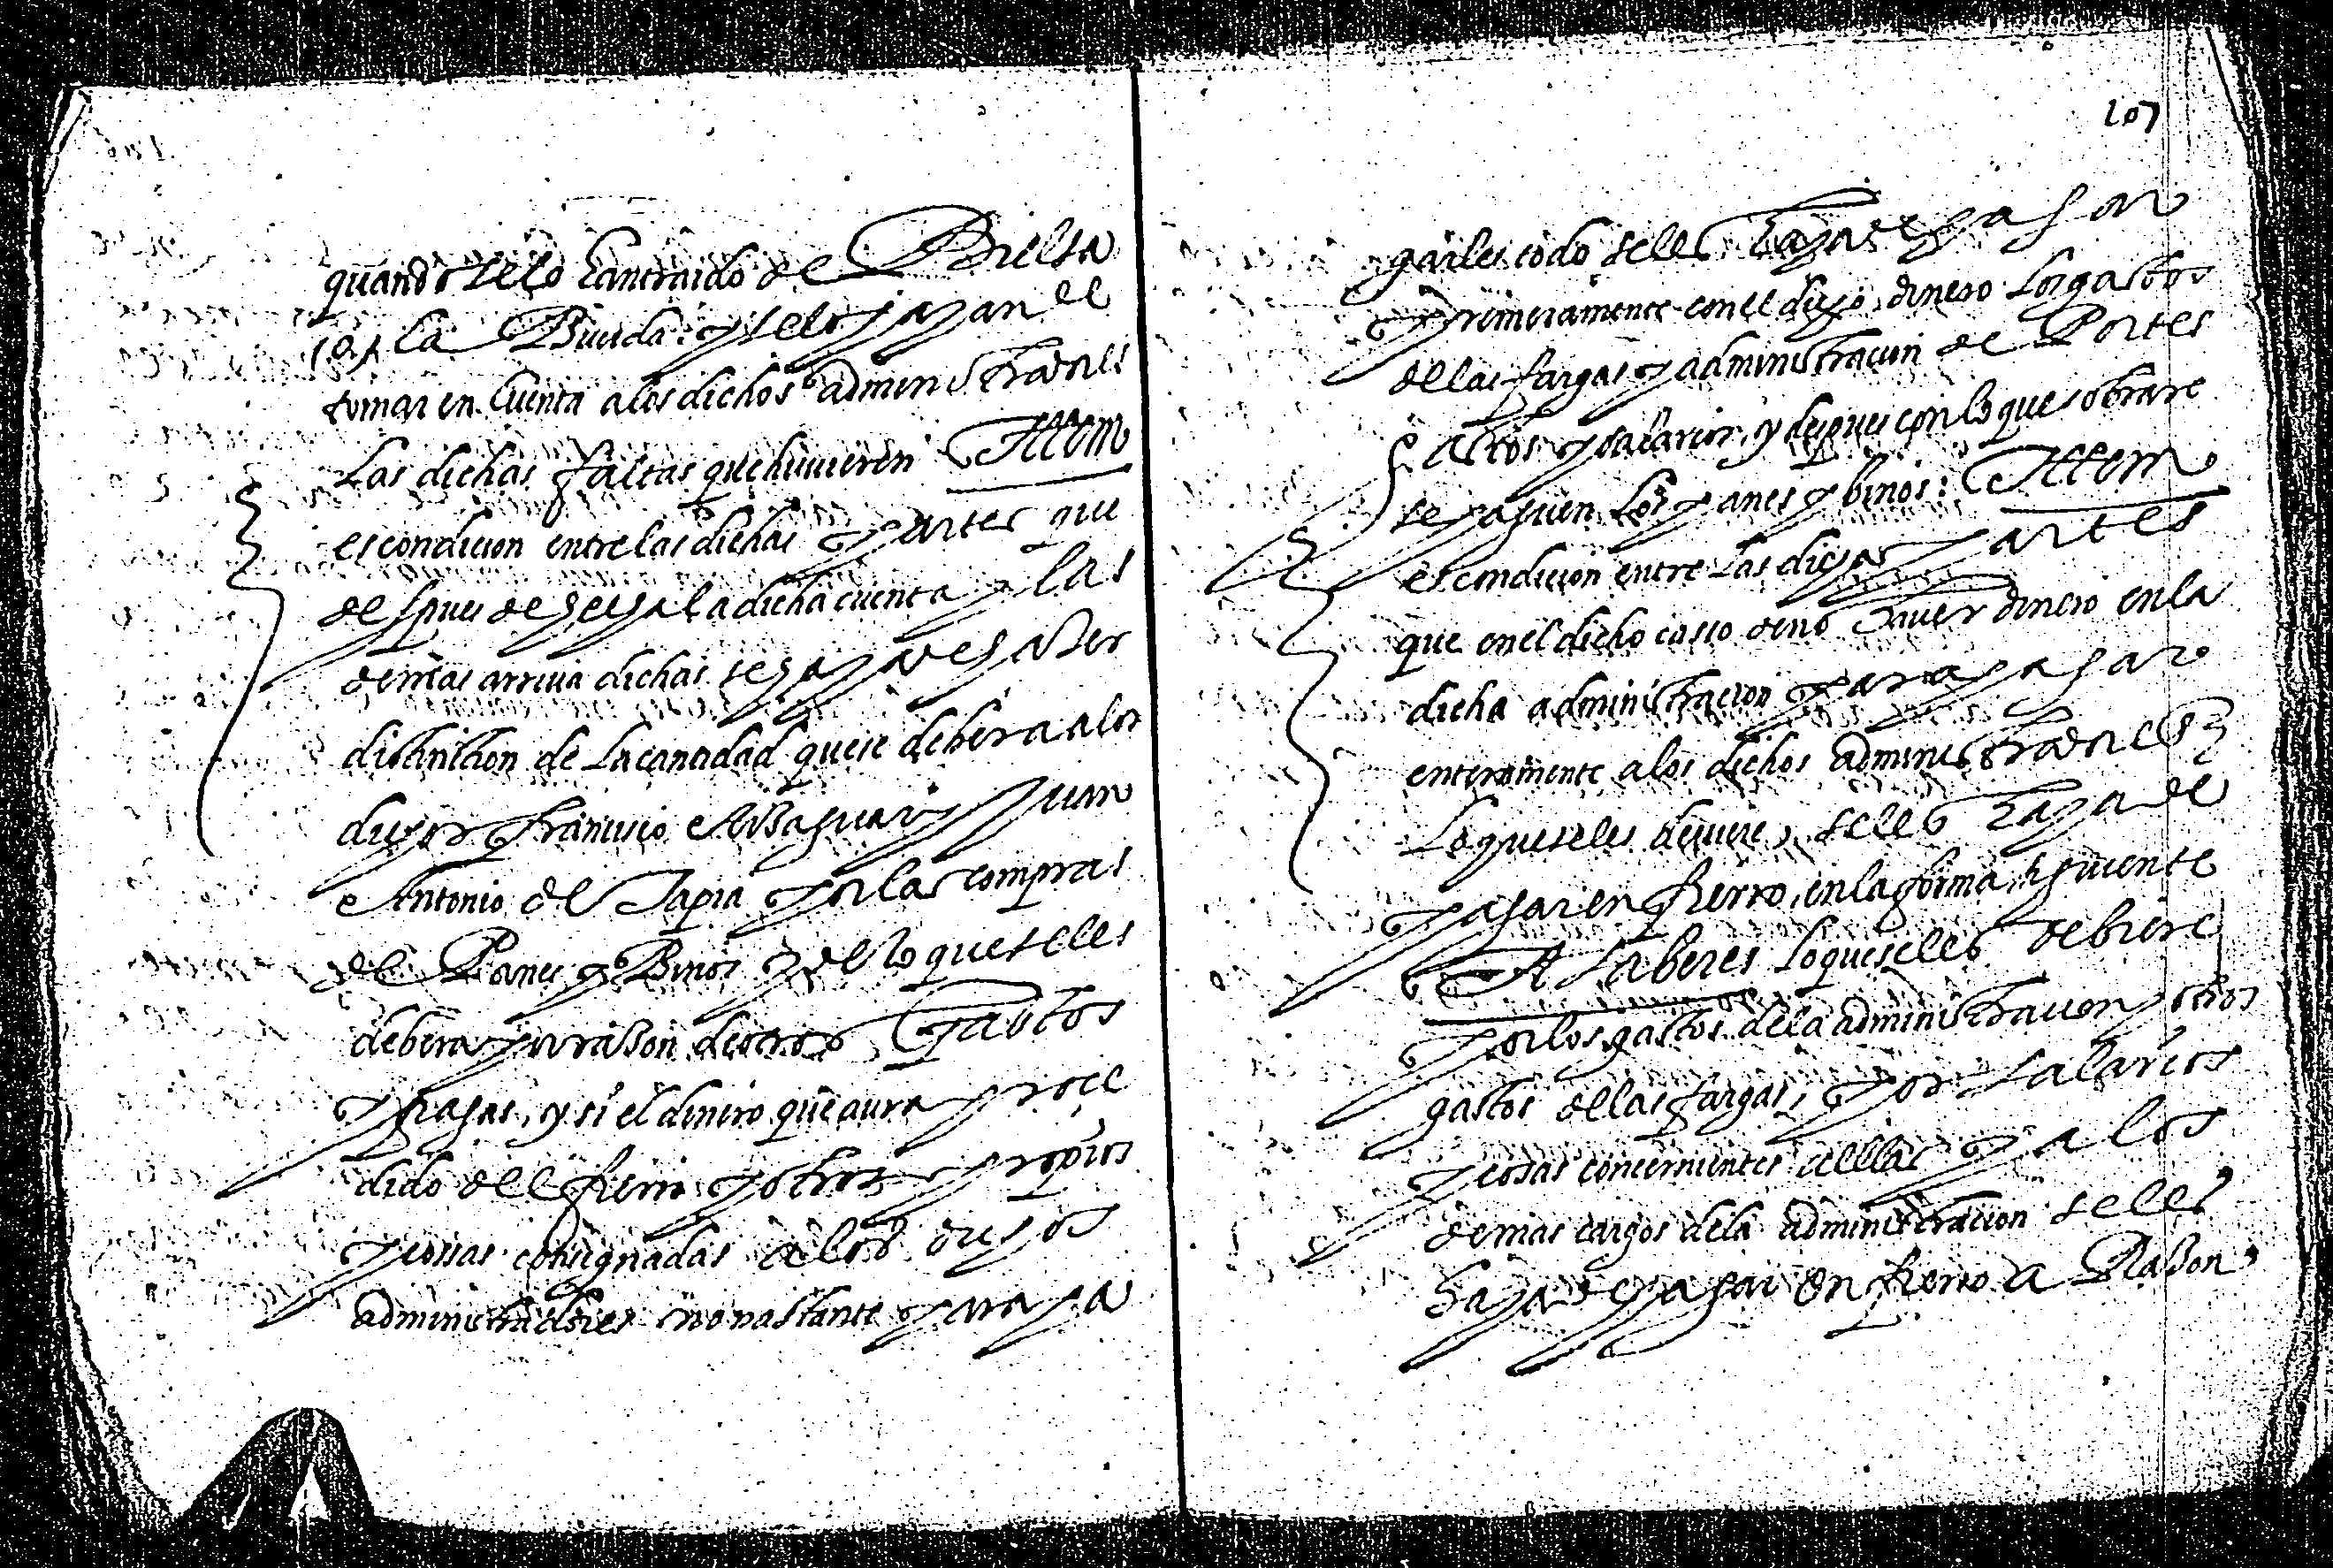 quando selo Cantraido de Bielsa
la Biuda: y selo hayan de
tomar en Cuenta alos dichos administradores
Las dichas faltas que huuieren Ittem
es condicion entre las dichas partes que
despues de hecha la dicha cuenta y las
demas arriua dichas se haya de haVer
distinction de La cantidad que se debera alos
dichos Francisco y Juan
Antonio de Tapia por las compras
de Panes y Binos y de lo que seles
debera por raBon de otros Gastos
y pagas, y si el dinero que aura proce
dido del fierro y otros propios
y cossas consignadas alos dichos
administradores no vastante para pa
107
garles todo seles haya de pagar
primeramente con el dicho dinero Los gastos
dellas fargas y administracion de Portes
Actos y salarios, y despues con lo que sobrare
se paguen Los panes y binos: Ittem
es condicion entre Las dichas partes
que en el dicho casso de no hauer dinero en la
dicha administracion para pagar
enteramente alos dichos administradores
Lo que seles deuiere, seles haya de
pagar en fierro, en la forma siguiente
A saber es Lo que seles debiere
por los gastos dela administracion y otros
gastos dellas fargas, por salarios
y cosas concernientes a ellas y a los
demas cargos dela administracion seles
haya de pagar en fierro a RaBon